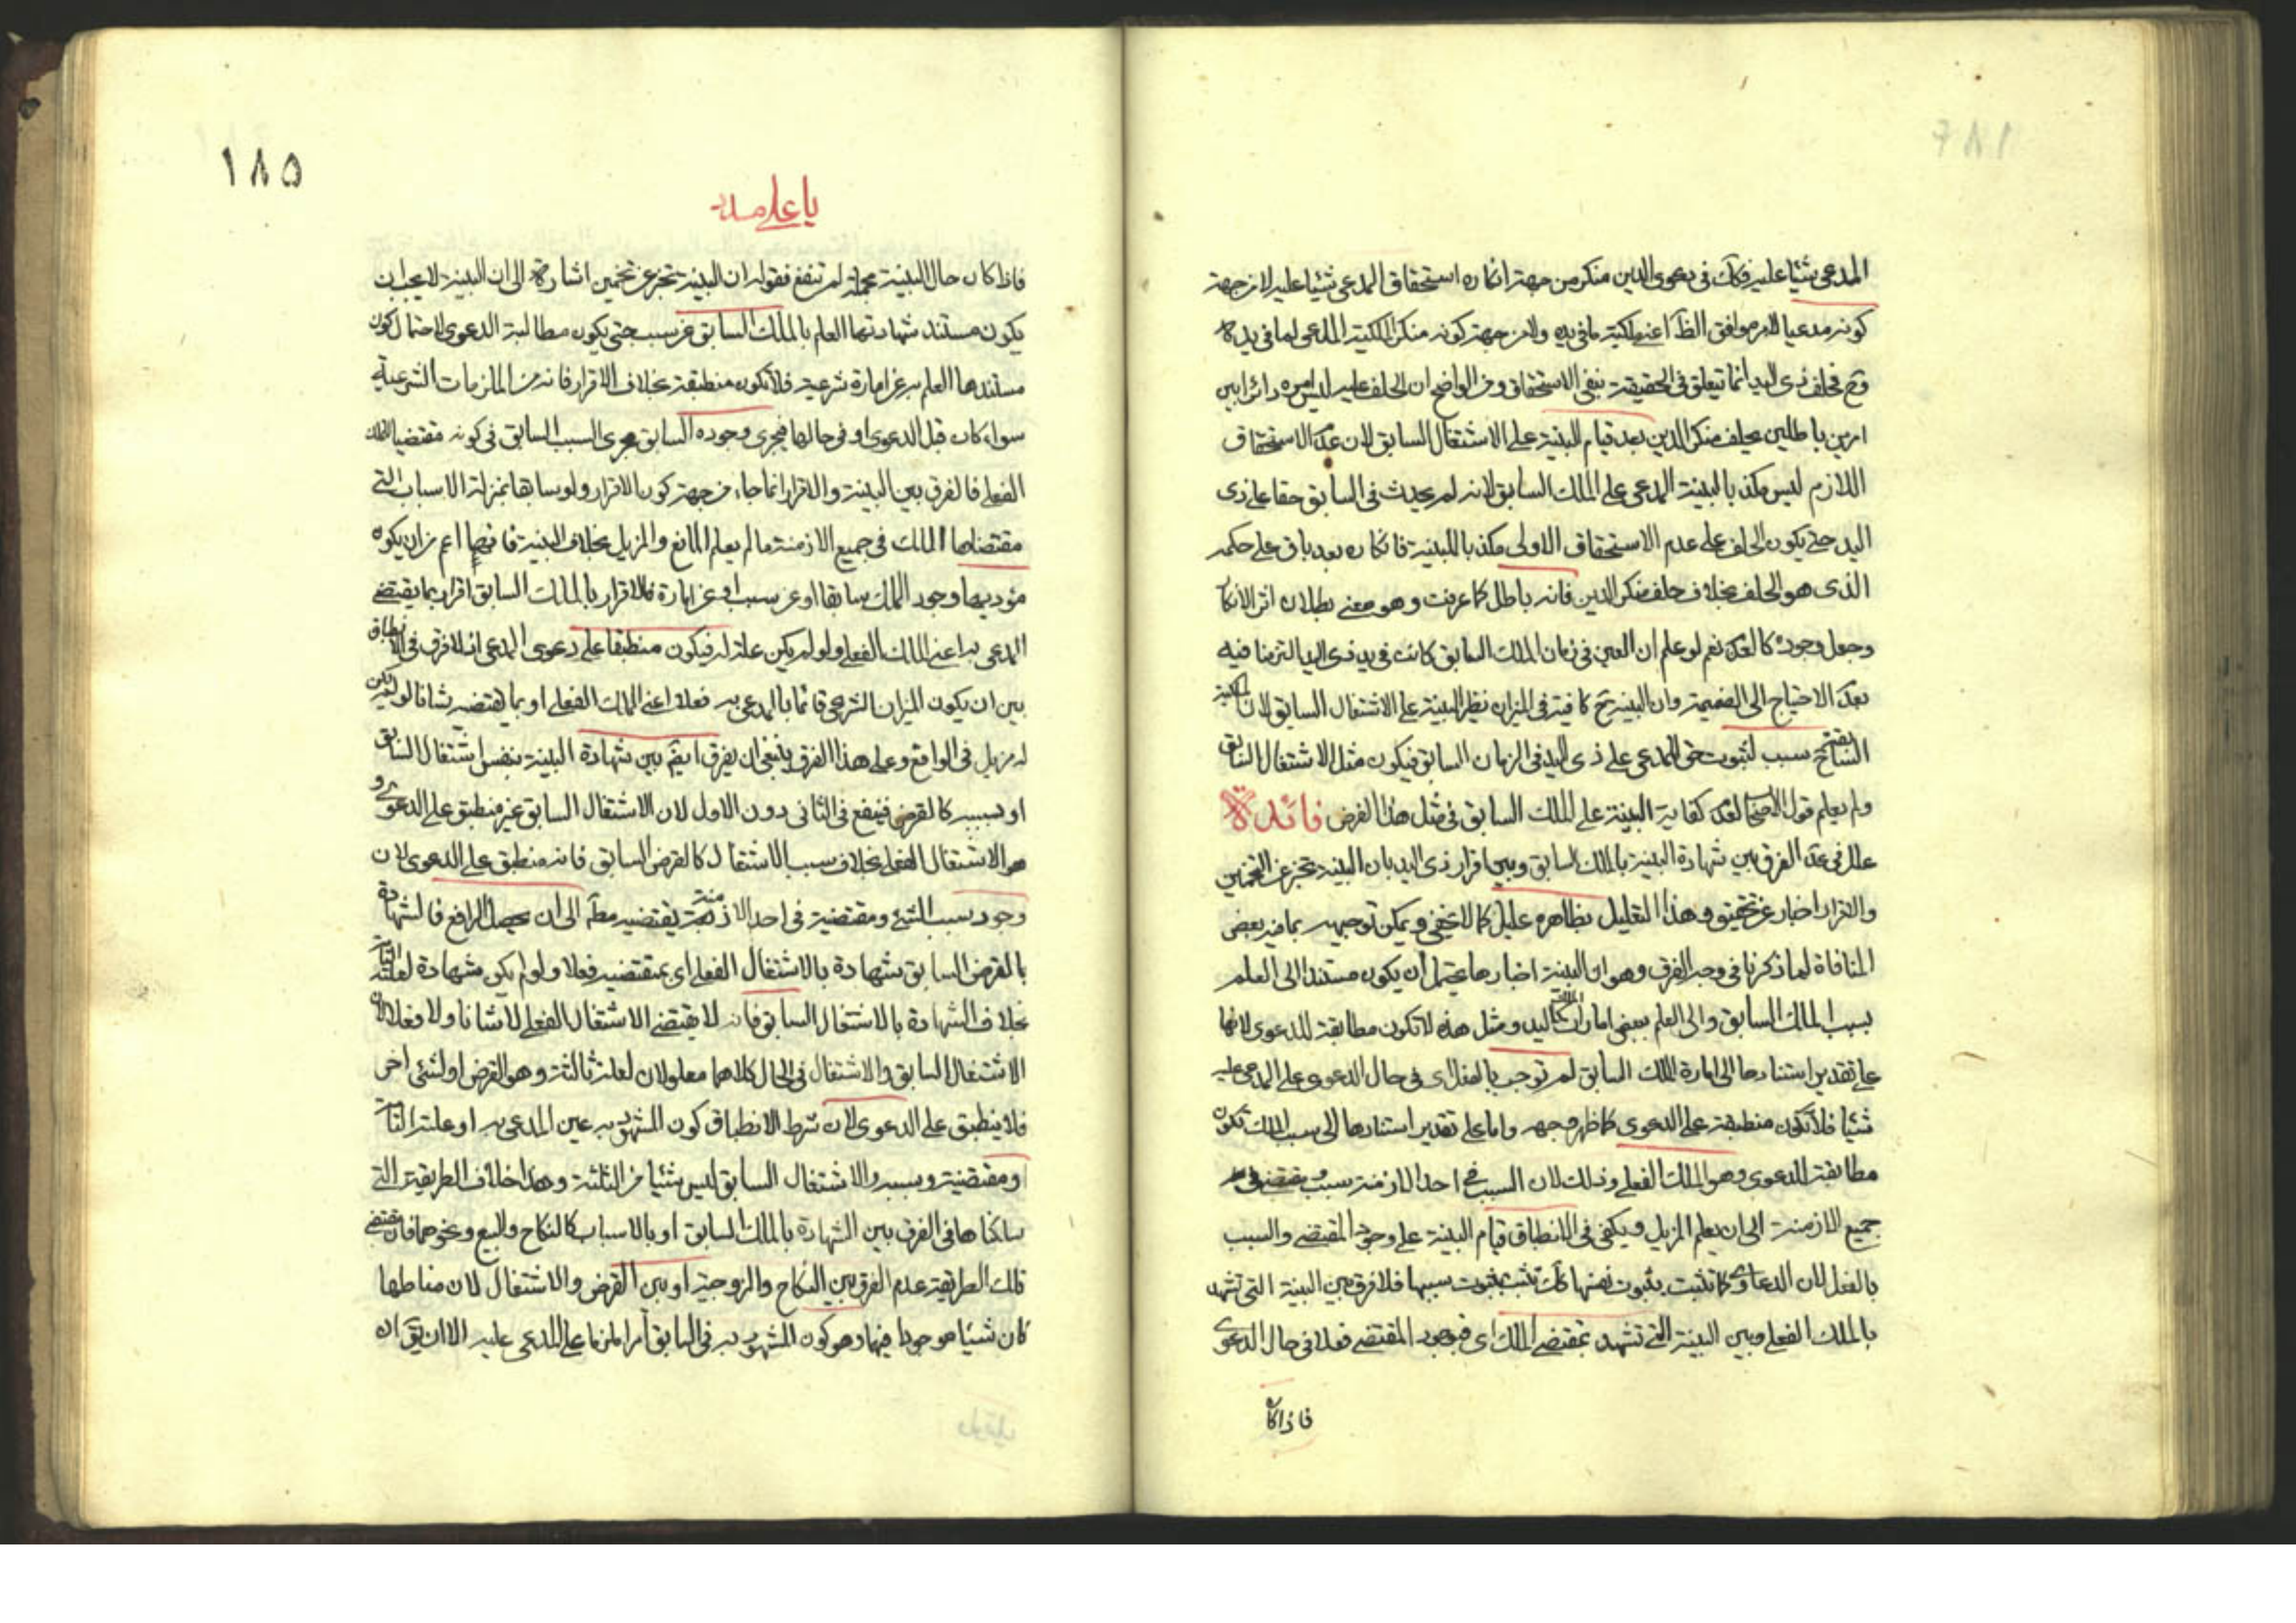 المدعى شيئا عليه فكك فى دعوى الدين منكر من جهة انكاره استحقاق المدعى شيئا عليه لا من جهة
كونه مدعيا لامر موافق الظ اعنى ملكية ما فى يده ولا من جهة كونه منكر الملكية المدعى لما فى يده
وح فحلف ذى اليد انما يتعلق فى الحقيقة بنفى الاستحقاق ومن الواضح ان الحلف عليه ليس امره دائرا بين
امرين باطلين بحلف منكر الدين بعد قيام البينة على الاشتغال السابق لان عدم الاستحقاق
اللازم ليس مكذبا لبينة المدعى على الملك السابق لانه لم يحدث فى السابق حقا على ذى
اليد حتى يكون الحلف على عدم الاستحقاق الاولى مكذبا للبينة فانكاره بعد باق على حكمه
الذى هو الحلف بخلاف حلف منكر الدين فانه باطل كما عرفت وهو معنى بطلان اثر الانكار
وجعل وجوده كالعدم نعم لو علم ان العين فى زمان الملك السابق كانت فى يد ذى اليد التزمنا فيه
بعدم الاحتياج الى الضميمة وان البينة ح كافية فى الميزان نظير البينة على الاشتغال السابق لان
سبب لثبوت حق المدعى على ذى اليد فى الزمان السابق فيكون مثل الاشتغال السابق
ولم يعلم قول الاصحاب لعدم كفاية البينة على الملك السابق فى مثل هذا الفرض فائدة
علل فى عدم الفرق بين شهادة البينة بالملك السابق وبين اقرار ذى اليد بان البينة تخبر عن التخمين
والاقرار اخبار عن تحقيق وهذا التعليل بظاهره عليل كما لا يخفى ويمكن توجيهه بما فيه بعض
المنافاة لما ذكرنا فى وجه الفرق وهو ان البينة اخبارها يحتمل ان يكون مستندا الى العلم
بسبب الملك السابق والى العلم ببعض امارات كاليد ومثل هذه لا تكون مطابقة للدعوى لانها
على تقدير استنادها الى امارة الملك السابق لم توجب بالفعل اى فى حال الدعوى على المدعى عليه
شيئا فلا تكون منطبقة على الدعوى كما ظهر وجهه واما على تقدير استنادها الى سبب الملك تكون
مطابقة للدعوى وهو الملك الفعلى وذلك لان السبب فى احد الازمنة سبب
جميع الازمنة الى ان يعلم المزيل ويكفى فى الانطباق قيام البينة على وجود المقتضى والسبب
بالفعل لان الدعاوى كما تثبت بثبوت نفسها كك تثبت بثبوت سببها فلا فرق بين البينة التى تشهد
بالملك الفعلى وبين البينة التى تشهد بمقتضى الملك اى فبوجود المقتضى فعلا فى حال الدعوى
فاذا كان
١٨٥
يا على مدد
فاذا كان حال البينة مجملة لم تنفع فقوله ان البينة تخبر عن تخمين اشارة الى ان البينة لا يجب ان
يكون مستند شهادتها العلم بالملك السابق عن سبب حتى يكون مطالبة الدعوى لاحتمال كون
مستندها العلم به عن امارة شرعية فلا تكون منطبقة بخلاف الاقرار فانه من الملزمات الشرعية
سواء كان قبل الدعوى او فى حالها فيجرى وجوده السابق مجرى السبب السابق فى كونه مقتضيا للملك
الفعلى فالفرق بين البينة والاقرار انما جاء من جهة كون الاقرار ولو سابقا بمنزلة الاسباب التى
مقتضاها الملك فى جميع الازمنة ما لم يعلم المانع والمزيل بخلاف البينة فانها اعم من ان يكون
مؤديها وجود الملك سابقا او عن سبب او عن امارة فالاقرار بالملك السابق اقرار بما يقتضى
المدعى به اعنى الملك الفعلى ولو لم يكن علة له فيكون منطبقا على دعوى المدعى اذ لا فرق فى الانطباق
بين ان يكون الميزان الشرعى قائما بالمدعى به فعلا اعنى الملك الفعلى او بما يقتضيه شانا لو لم يكن
له مزيل فى الواقع وعلى هذا الفرق ينبغى ان يفرق ايضا بين شهادة البينة بنفس اشتغال السابق
او بسببه كالقرض فينفع فى الثانى دون الاول لان الاشتغال السابق غير منطبق على الدعوى و
هو الاشتغال الفعلى بخلاف سبب الاشتغال كالقرض السابق فانه منطبق على الدعوى لان
وجود سبب الشئ ومقتضيه فى احد الازمنة يقتضيه مط الى ان يحصل الرافع فالشهادة
بالقرض السابق شهادة بالاشتغال الفعلى اى بمقتضيه فعلا ولو لم يكن شهادة لعلته التامة
بخلاف الشهادة بالاشتغال السابق فانه لا يقتضى الاشتغال الفعلى لا شانا ولا فعلا لان
الاشتغال السابق والاشتغال فى الحال كلاهما معلولان لعلة ثالثة وهو القرض او لشئ اخر
فلا ينطبق على الدعوى لان شرط الانطباق كون المشهود به عين المدعى به او علته التامة
او مقتضيه وسببه والاشتغال السابق ليس شيئا من الثلثة وهذا خلاف الطريقة التى
سلكناها فى الفرق بين الشهادة بالملك السابق او بالاسباب كالنكاح والبيع ونحوهما فان مقتضى
تلك الطريقة عدم الفرق بين النكاح والزوجية او بين القرض والاشتغال لان مناطها
كان شيئا موجودا فيها وهو كون المشهود به فى السابق امرا ملزما على المدعى عليه الا ان يق ان